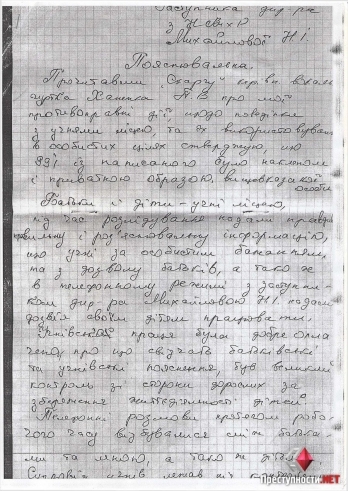 Заступника дир-ра
з НвихР
Михайлової Н.І.
Пояснювальна.
Прочитавши "Скаргу"
гуртка Ханюка про мої
противоправні дії, щодо поведінки
з учнями ліцею, та їх використовування
в особистих цілях стверджую, що
99% із написаного було наклепом
і приватною образою вищевказаної
особи
Батьки й діти - учні ліцею,
під час розслідування надали правди
і роз'яснювальну інформацію,
що учні за особистим бажанням
та з дозволу батьків, а також
в телефонному режимі з заступни-
ком дир-ра Михайловою Н.І. надали
дозвіл своїм дітям працювати.
Учнівська праця була добре опла
чена, про що свідчать батьківські
та учнівські пояснення, був великий
контроль зі сторони дорослих за
збереження життєдіяльності дітей.
Телефонні розмови протягом робо-
чого часу відбувалися між батька-
ми та мною, а також дітьми
учнів лежав
Преступности.НЕТ